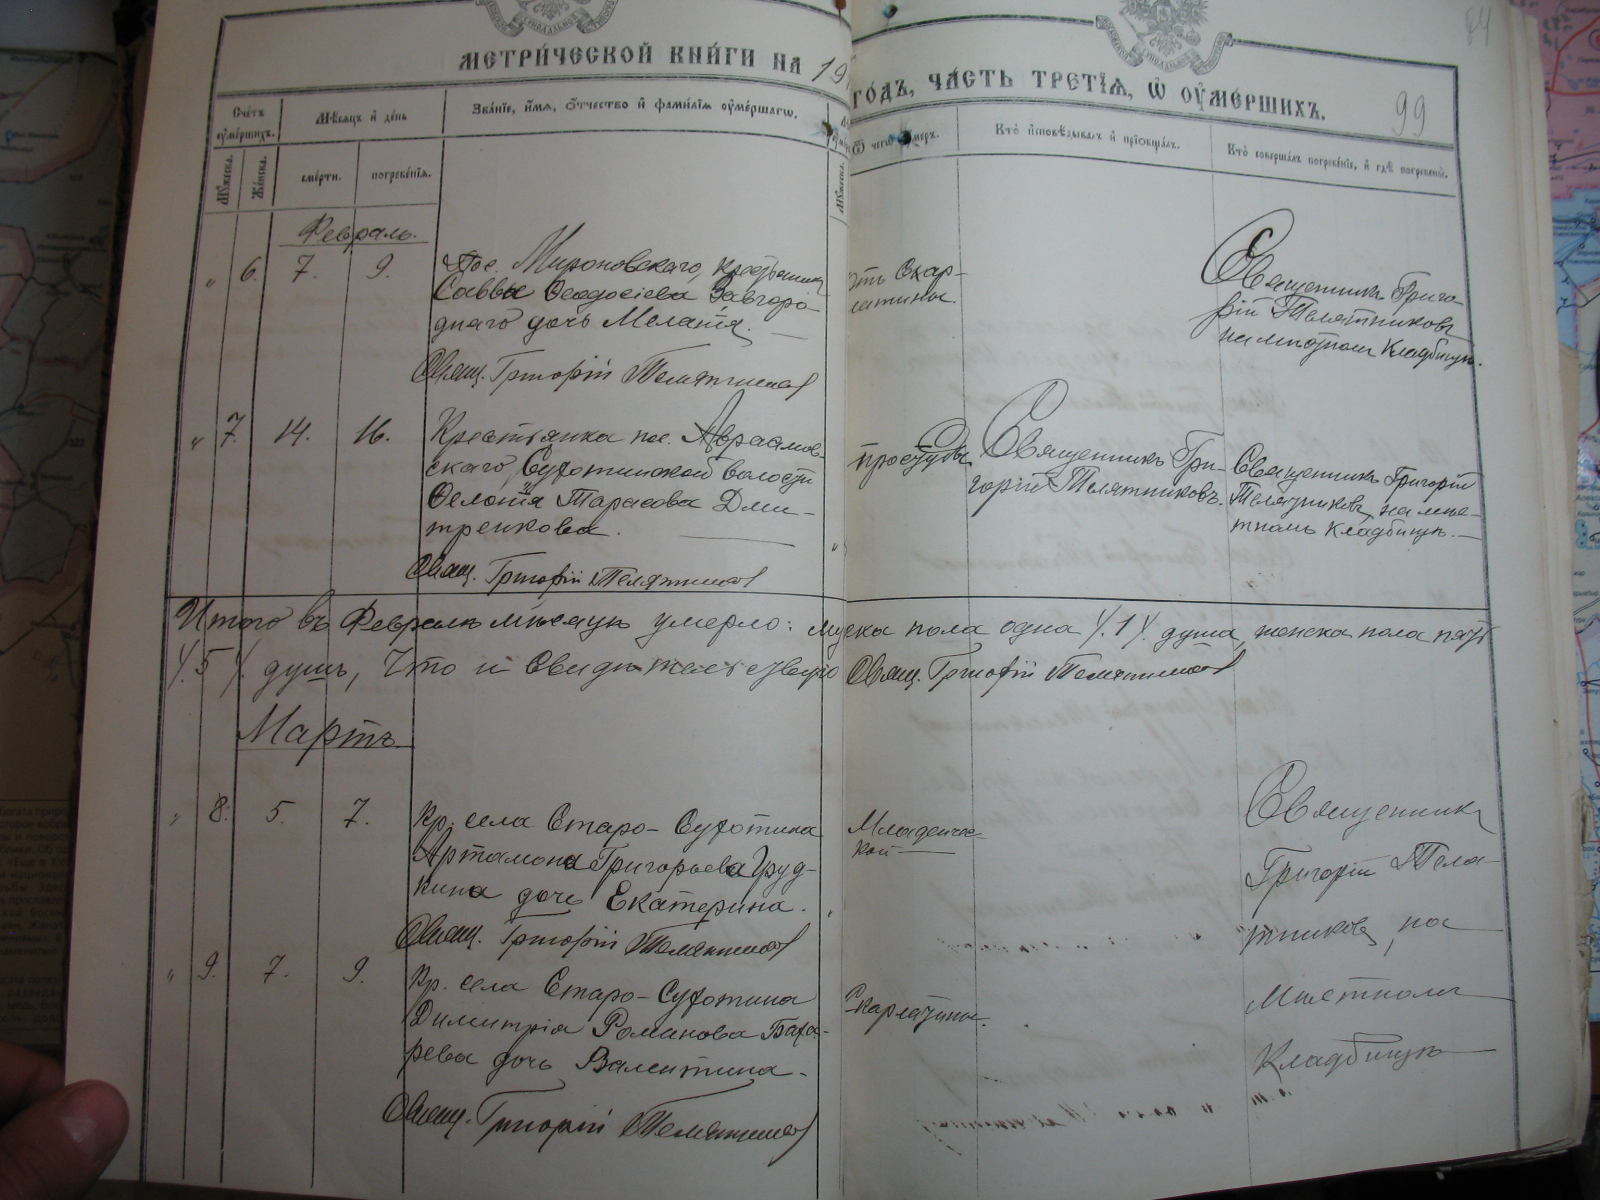 МЕТРИ́ЧЕСКОЙ КНИ́ГИ НА 19
ГОДЪ, ЧА́СТЬ ТРЕТІѦ, Ѡ ОУМЕ́РШИХЪ.
99
Сче́тъ оуме́ршихъ.
Мѣсяцъ и день
Зва́нїе, и́мя, о́тчество и фами́лїя оуме́ршагѡ.
Ѿ чегѡ оумеръ.
Кто̀ исповѣдывалъ и прїобща́лъ.
Кто̀ соверша́лъ погребе́нїе, и гдѣ̀ погребены̀.
Мужеска.
Же́нска.
сме́рти.
погребе́нїя.
Мужеска.
Февраль.
" 6. 7. 9.
Пос. Мироновскаго, крестьянина
Саввы Ѳеодосіева Завгоро-
дняго дочь Меланія.
Свящ. Григорій Телятников
отъ скар-
латины
Священникъ Григо-
рій Телятниковъ
на мѣстном кладбищѣ.
" 7. 14. 16.
Крестьянка пос. Авраамов-
скаго, Сухотинской волости
Тарасова Дми-
тренкова.
Свящ. Григорій Телятников
простуды
Священникъ Гри-
горій Телятниковъ.
Священникъ Григорій
Телятниковъ, на мѣс-
тномъ кладбищѣ.
Итого въ Февралѣ мѣсяцѣ умерло: мужска пола одна /.1/. душа, женска пола пять
/.5/. душъ, Что и Свидѣтельствую Свящ. Григорій Телятников
Мартъ.
" 8. 5. 7.
Кр. села Старо-Сухотина
Артамона Григорьева Груд-
кина дочь Екатерина.
Свящ. Григорій Телятников
Младенчес-
кой
Священникъ
Григорій Теля-
тниковъ, на
Мѣстном
Кладбищѣ
" 9. 7. 9.
Кр. села Старо-Сухотина
Димитрія Романова Баха-
рева дочь Валентина.
Свящ. Григорій Телятников
Скарлатины.